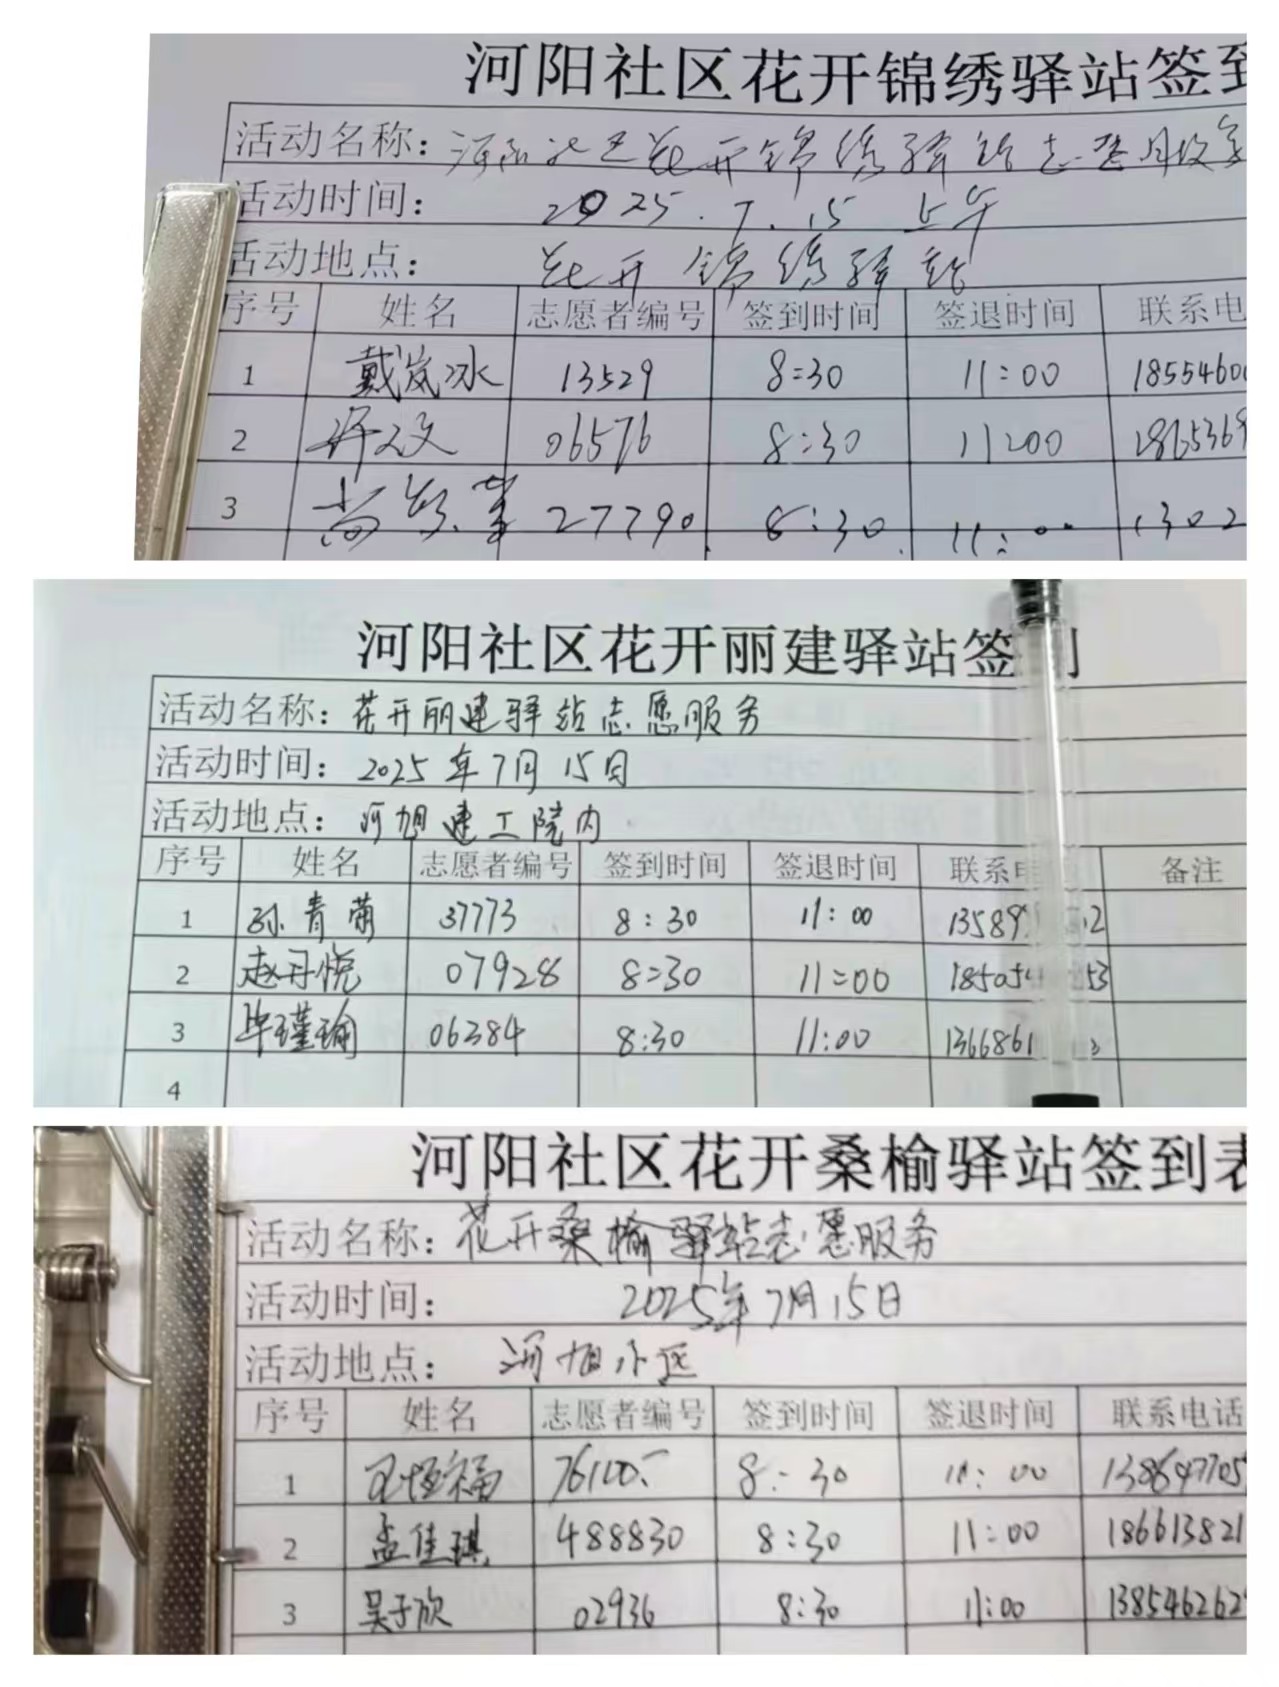 河阳社区花开锦绣驿站签到
活动名称：河阳社区花开锦绣驿站志愿服务
活动时间： 2025.7.15 上午
活动地点： 花开锦绣驿站
序号 姓名 志愿者编号 签到时间 签退时间 联系电
1 戴岚冰 13529 8:30 11:00 1855460
2 许文文 06576 8:30 11:00 1865368
3 27790 8:30 11:00 1302
河阳社区花开丽建驿站签到
活动名称：花开丽建驿站志愿服务
活动时间：2025年7月15日
活动地点：河旭建工院内
序号 姓名 志愿者编号 签到时间 签退时间 联系电 备注
1 孙青菊 37773 8:30 11:00 13589 12
2 赵丹悦 07928 8:30 11:00 185054 53
3 毕瑾瑜 06384 8:30 11:00 1366861 3
4
河阳社区花开桑榆驿站签到表
活动名称：花开桑榆驿站志愿服务
活动时间： 2025年7月15日
活动地点： 河旭小区
序号 姓名 志愿者编号 签到时间 签退时间 联系电话
1 王恒福 76100 8:30 11:00 138647705
2 孟佳琪 488830 8:30 11:00 186613821
3 吴于欣 02936 8:30 11:00 138546262